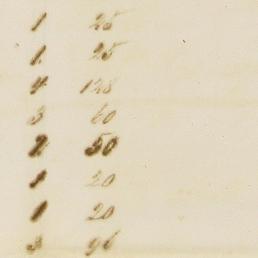 1 25
1 25
4 128
3 60
2 50
1 20
1 20
3 96